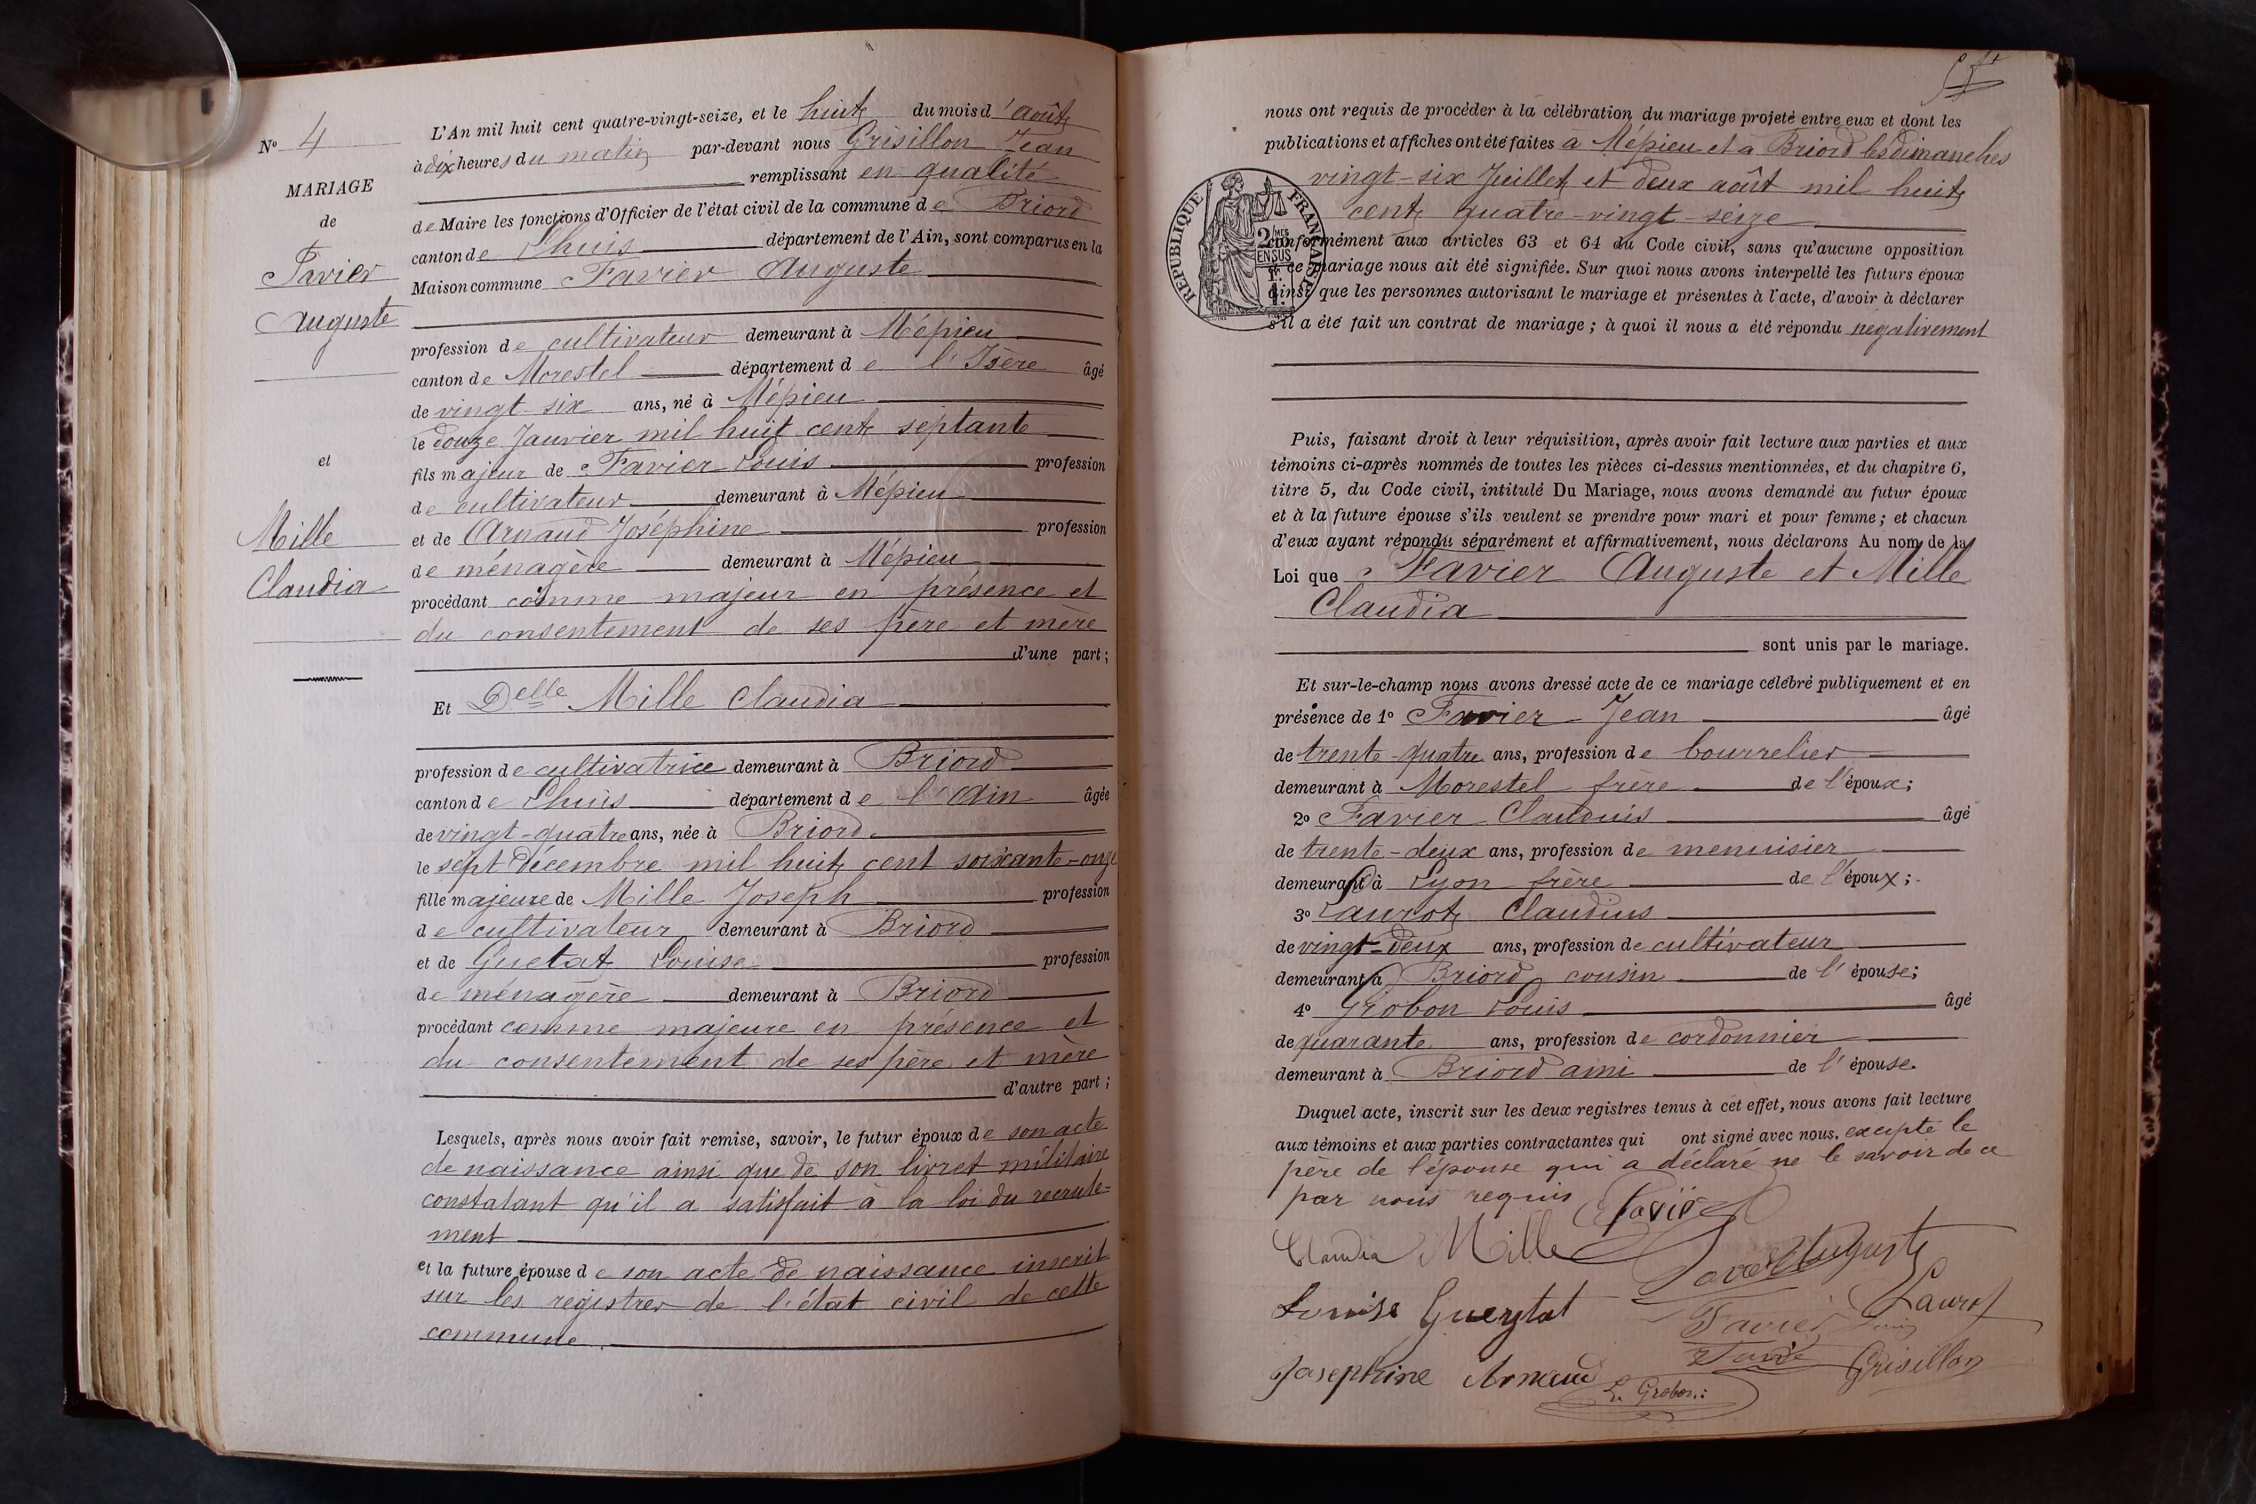 N° 4
MARIAGE
de
Favier
Auguste
et
Mille
Claudia
L'An mil huit cent quatre-vingt-seize, et le huit du mois d'août
à dix heures du matin par-devant nous Grisillon Jean
remplissant en qualité
de Maire les fonctions d'Officier de l'état civil de la commune de Briord
canton de Lhuis département de l'Ain, sont comparus en la
Maison commune Favier Auguste
profession de cultivateur demeurant à Mépieu
canton de Morestel département de l'Isère âgé
de vingt-six ans, né à Mépieu
le douze Janvier mil huit cent septante
fils majeur de Favier Louis profession
de cultivateur demeurant à Mépieu
et de Arnaud Joséphine profession
de ménagère demeurant à Mépieu
procédant comme majeur en présence et
du consentement de ses père et mère
d'une part;
Et Delle Mille Claudia
profession de cultivatrice demeurant à Briord
canton de Lhuis département de l'Ain âgée
de vingt-quatre ans, née à Briord
le sept Décembre mil huit cent soixante-onze
fille majeure de Mille Joseph profession
de cultivateur demeurant à Briord
et de Guetat Louise profession
de ménagère demeurant à Briord
procédant comme majeure en présence et
du consentement de ses père et mère
d'autre part;
Lesquels, après nous avoir fait remise, savoir, le futur époux de son acte
de naissance ainsi que de son livret militaire
constatant qu'il a satisfait à la loi du recrute-
ment
et la future épouse de son acte de naissance inscrit
sur les registres de l'état civil de cette
commune.
nous ont requis de procéder à la célébration du mariage projeté entre eux et dont les
publications et affiches ont été faites à Mépieu et à Briord les dimanches
vingt-six Juillet et deux août mil huit
cent quatre-vingt-seize
RÉPUBLIQUE FRANÇAISE
2 MES
EN SUS
conformément aux articles 63 et 64 du Code civil, sans qu'aucune opposition
à ce mariage nous ait été signifiée. Sur quoi nous avons interpellé les futurs époux
ainsi que les personnes autorisant le mariage et présentes à l'acte, d'avoir à déclarer
s'il a été fait un contrat de mariage; à quoi il nous a été répondu negativement
Puis, faisant droit à leur réquisition, après avoir fait lecture aux parties et aux
témoins ci-après nommés de toutes les pièces ci-dessus mentionnées, et du chapitre 6,
titre 5, du Code civil, intitulé Du Mariage, nous avons demandé au futur époux
et à la future épouse s'ils veulent se prendre pour mari et pour femme; et chacun
d'eux ayant répondu séparément et affirmativement, nous déclarons Au nom de la
Loi que Favier Auguste et Mille
Claudia
sont unis par le mariage.
Et sur-le-champ nous avons dressé acte de ce mariage célébré publiquement et en
présence de 1° Favier Jean âgé
de trente-quatre ans, profession de bourrelier
demeurant à Morestel frère de l'époux;
2° Favier Claudius âgé
de trente-deux ans, profession de menuisier
demeurant à Lyon frère de l'époux;
3° Laurot Claudius
de vingt-deux ans, profession de cultivateur
demeurant à Briord cousin de l'épouse;
4° Grobon Louis âgé
de quarante ans, profession de cordonnier
demeurant à Briord ami de l'épouse.
Duquel acte, inscrit sur les deux registres tenus à cet effet, nous avons fait lecture
aux témoins et aux parties contractantes qui ont signé avec nous. excepté le
père de l'épouse qui a déclaré ne le savoir de ce
par nous requis
Claudia Mille
Auguste
Louise Gueytat
Laurot
Favier
Josephine Arnaud
L. Grobon
Grisillon